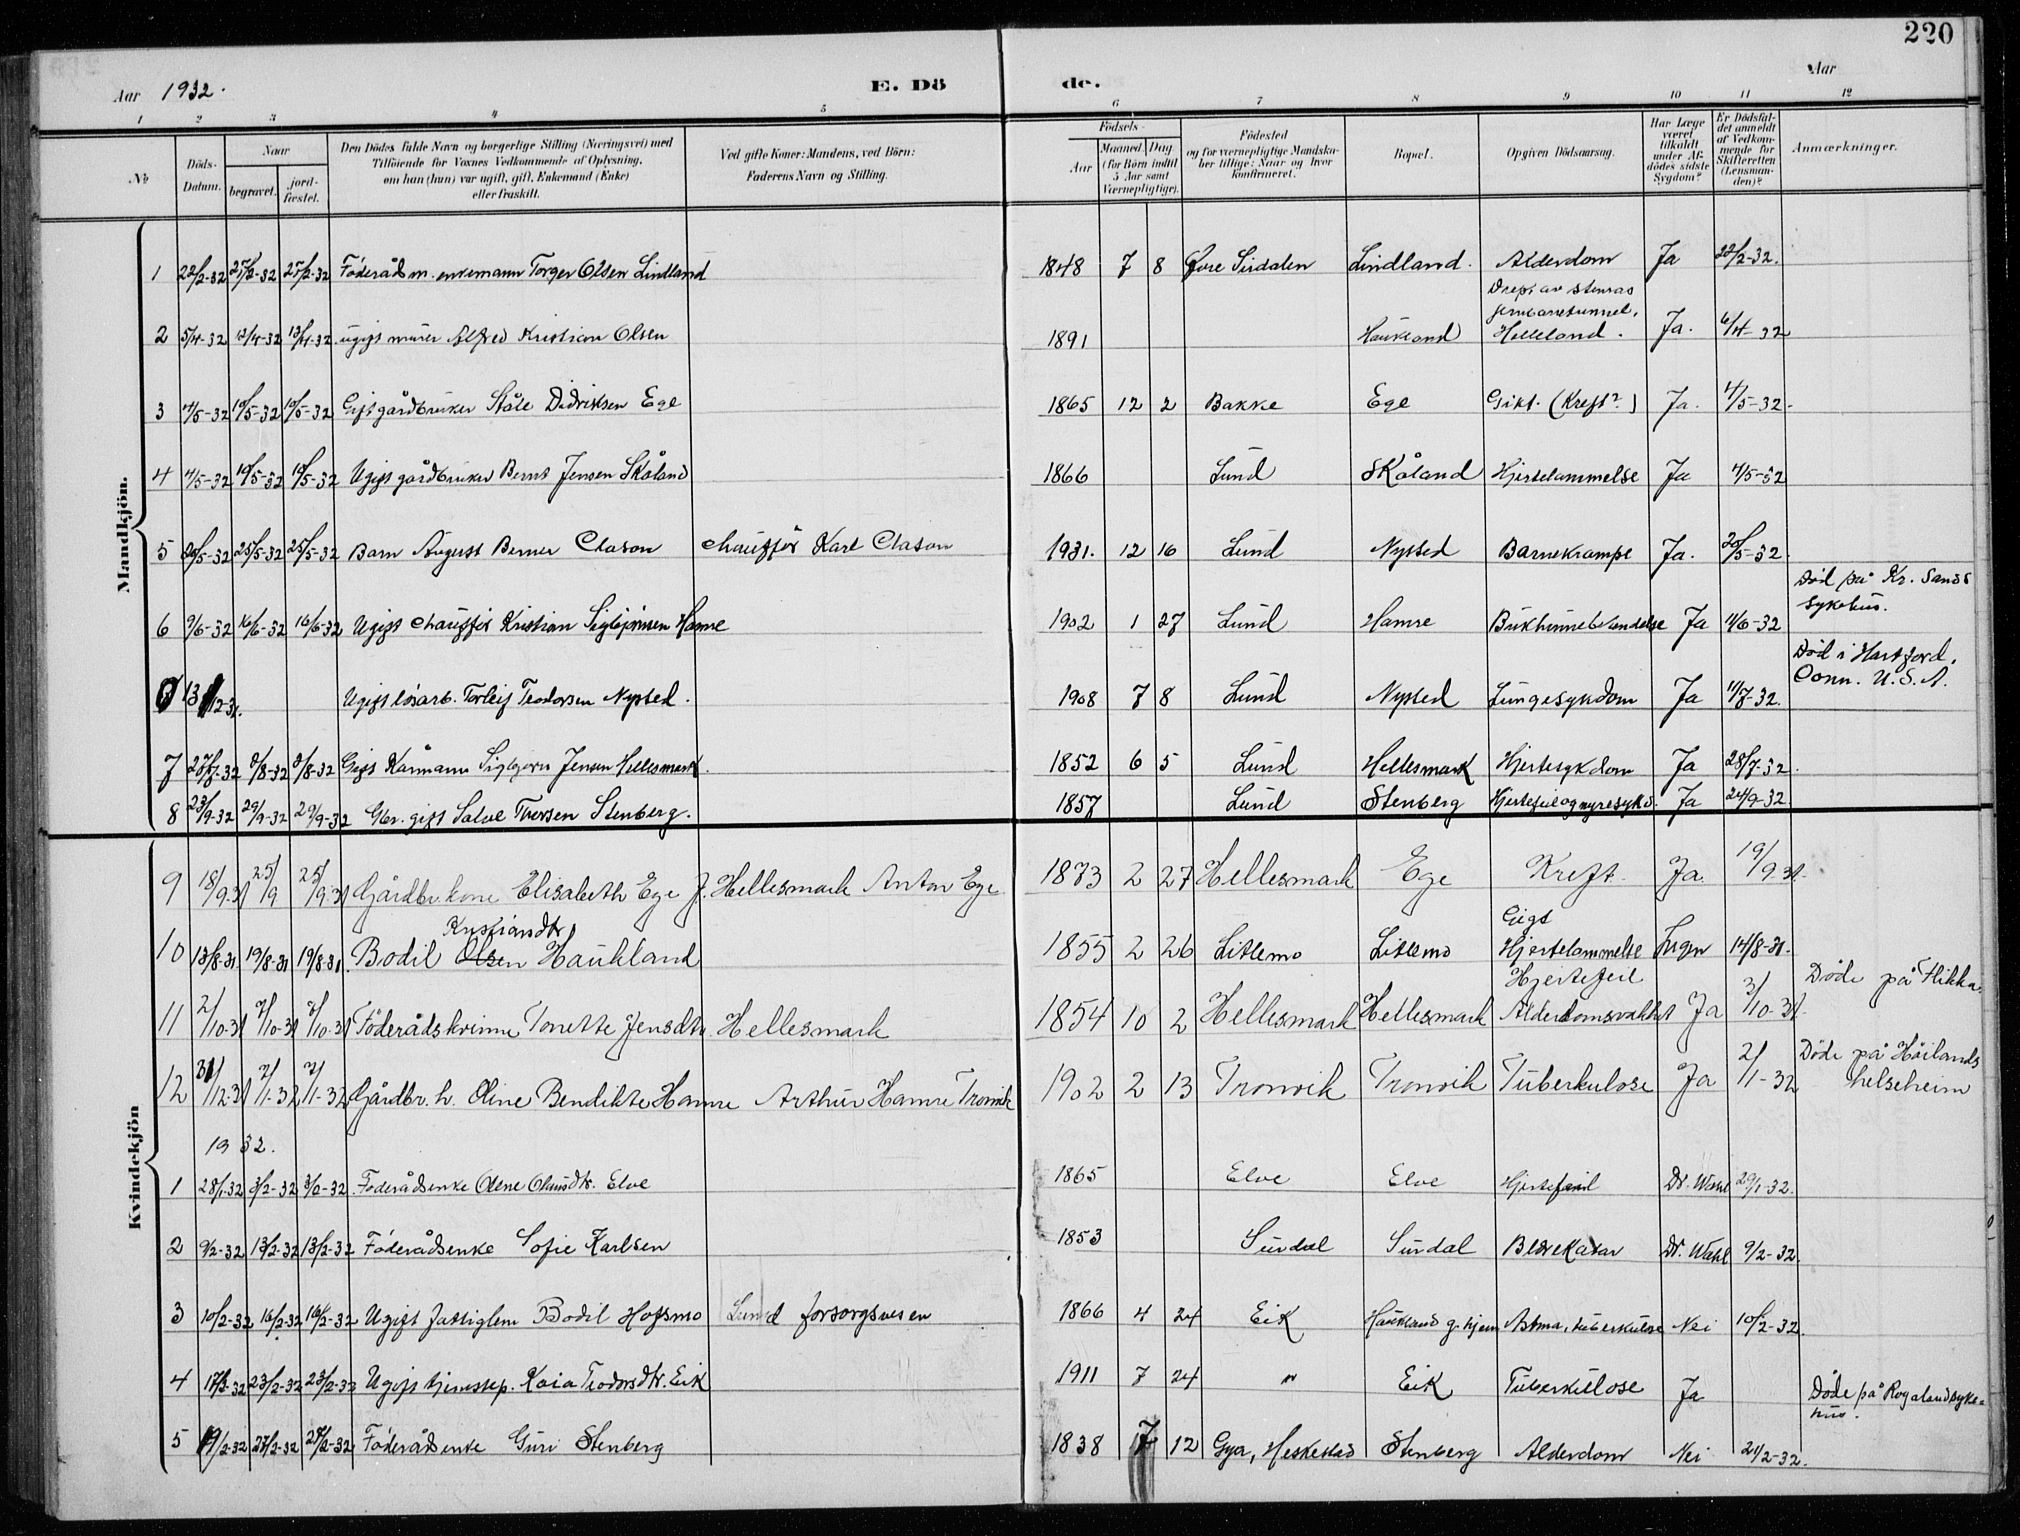 220
Aar 1932. E. Dö de. Aar
1 2 3 4 5 6 7 8 9 10 11 12
No
Döds-Datum.
Naar
begravet. jord-fæstet.
Den Dödes fulde Navn og borgerlige Stilling (Næringsvei) med
Tilföiende for Voxnes Vedkommende af Oplysning,
om han (hun) var ugift, gift, Enkemand (Enke)
eller fraskilt.
Ved gifte Koner: Mandens, ved Börn:
Faderens Navn og Stilling.
Födsels-
Aar
Maaned. Dag.
(for Börn indtil
5 Aar samt
Værnepligtige).
Födested
og for værnepligtige Mandska-
ber tillige: Naar og hvor
Konfirmeret.
Bopæl.
Opgiven Dödsaarsag.
Har Læge
været
tilkaldt
under Af-
dödes sidste
Sygdom?
Er Dödsfal-
det anmeldt
af Vedkom-
mende for
Skifteretten
(Lensman-
den)?
Anmærkninger.
Mandkjön.
1 22/2-32 25/2-32 25/2-32 Föderåds m. enkemann Torger Olsen Lindland 1848 7 8 Øvre Sirdalen Lindland. Alderdom Ja 22/2-32.
Drept av stenras
jernbanetunnel,
2 5/4-32 12/4-32 12/4-32 ugift murer Alfred Kristian Olsen 1891 Haukland Helleland. Ja. 6/4-32
3 4/5-32 10/5-32 10/5-32 Gift gårdbruker Ståle Didriksen Ege 1865 12 2 Bakke Ege Gikt. (Kreft?) Ja. 4/5-32-
4 4/5-32 10/5-32 10/5-32 Ugift gårdbruker Bernt Jensen Skåland 1866 Lund Skåland Hjertelammelse Ja 4/5-32
5 20/5-32 25/5-32 25/5-32 Barn August Berner Clason chauffør Karl Clason 1931. 12 16 Lund Nysted Barnekrampe Ja. 20/5-32.
Död på Kr. Sands
sykehus.
6 9/6-32 16/6-32 16/6-32 Ugift chauffør Kristian Sigbjørnsen Hamre 1902 1 27 Lund Hamre Bukhinnebetendelse Ja 11/6-32
Död i Hartford,
Conn. U.S.A.
13 12-31. Ugift løsarb. Torleif Teodorsen Nysted. 1908 7 8 Lund Nysted Lungesykdom Ja 11/7-32.
7 27/7-32 3/8-32 3/8-32 Gift Kårmann Sigbjørn Jensen Hellesmark. 1852 6 5 Lund Hellesmark Hjertesykdom Ja 28/7-32.
8 23/9-32 29/9-32 29/9-32 Gbr. gift Salve Thorsen Stenberg. 1857 Lund Stenberg Hjertefeil og nyresykd. Ja 24/9-32
Kvindekjön
9 18/9-31 25/9 25/9-31 Gårdbr. kone Elisabeth Ege f. Hellesmark Anton Ege 1873 2 27 Hellesmark Ege Kreft Ja. 19/9 31.
Kristiansdtr. Gigt
10 13/8-31 19/8-31 19/8-31. Bodil Olsen Haukland 1855 2 26 Litlemo Litlemo Hjertelammelse Ingen 14/8-31.
Hjertefeil Döde på Flikka.
11 2/10-31 7/10-31 7/10-31 Föderådskvinne Tonette Jensdtr. Hellesmark 1854 10 2 Hellesmark Hellesmark Alderdomsvakhet Ja 3/10-31.
Döde på Håilands
helseheim
12 31/12-31 7/1-32 7/1-32 Gårdbr. h. Oline Bendikte Hamre Arthur Hamre Tronvik 1902 2 13 Tronvik Tronvik Tuberkulose Ja 2/1-32
1932.
1 28/1-32 3/2-32 3/2-32. Föderådsenke Olene Olausdtr. Elve 1865 Elve Elve Hjertefeil Dr. Wahl 29/1-32.
2 9/2-32 13/2-32 13/2-32 Föderådsenke Sofie Karlsen 1853 Surdal Surdal Blærekatar Dr. Wahl 9/2-32.
3 10/2-32 16/2-32 16/2-32 Ugift fattiglem Bodil Hofsmo Lund forsorgsvesen 1866 4 24 Eik Haukland g. hjem Astma, tuberkulose Nei 10/2-32.
4 17/2-32 23/2-32 23/2-32 Ugift tjenestep. Kaia Teodorsdtr. Eik 1911 7 24 " Eik Tuberkulose Ja
Döde på Rogaland syke-
hus.
5 19/2-32 27/2-32 27/2-32 Föderådsenke Guri Stenberg 1838 7 12 Gya, Heskestad Stenberg Alderdom Nei 21/2-32.